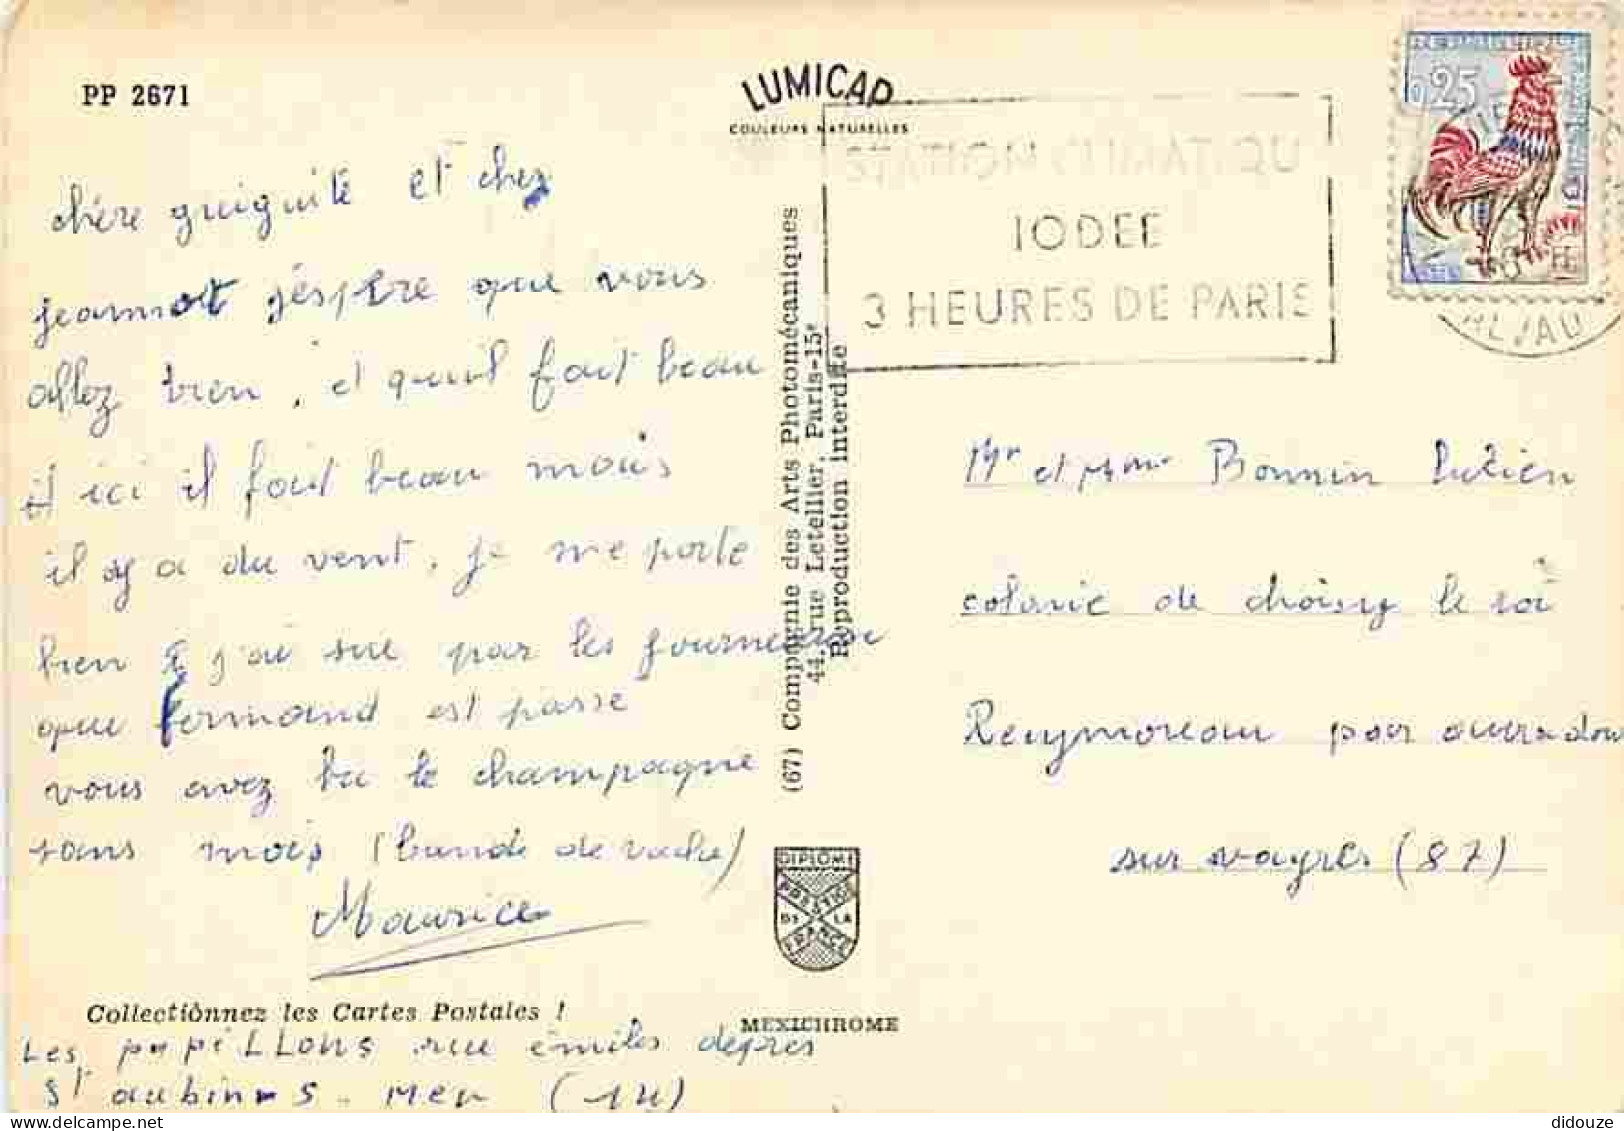 PP 2671
LUMICAP
COULEURS NATURELLES
STATION CLIMATIQU
IODEE
3 HEURES DE PARIS
0,25
chère guiguite et cher
jeannot j'éspère que vous
allez bien, et qu'il fait beau
et ici il fait beau mais
il y a du vent. je me porte
bien j'ai sue par les fourneaux
que fernand est passé
vous avez bu le champagne
sans mois (bande de vache)
Maurice
Collectionnez les Cartes Postales !
Les papiLLons rue émiles deprès
St aubines. mer (14)
(67) Compagnie des Arts Photomécaniques
44, rue Letellier, Paris-15e
Reproduction interdite
DIPLOME
PRESTIGE
DE LA
FRANCE
MEXICHROME
Mr et Mme Bonnin Lucien
colonie de choisy le roi
Reuymoreau par ouradour
sur vayres (87)